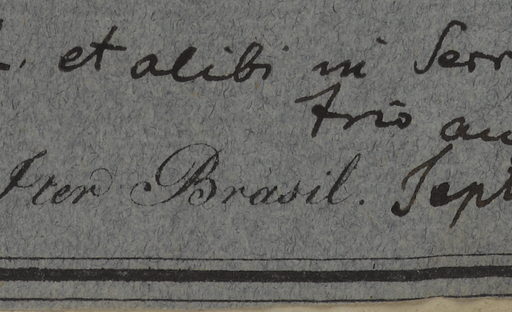 et alibi in Serr
frio au
Iter Brasil. Sept